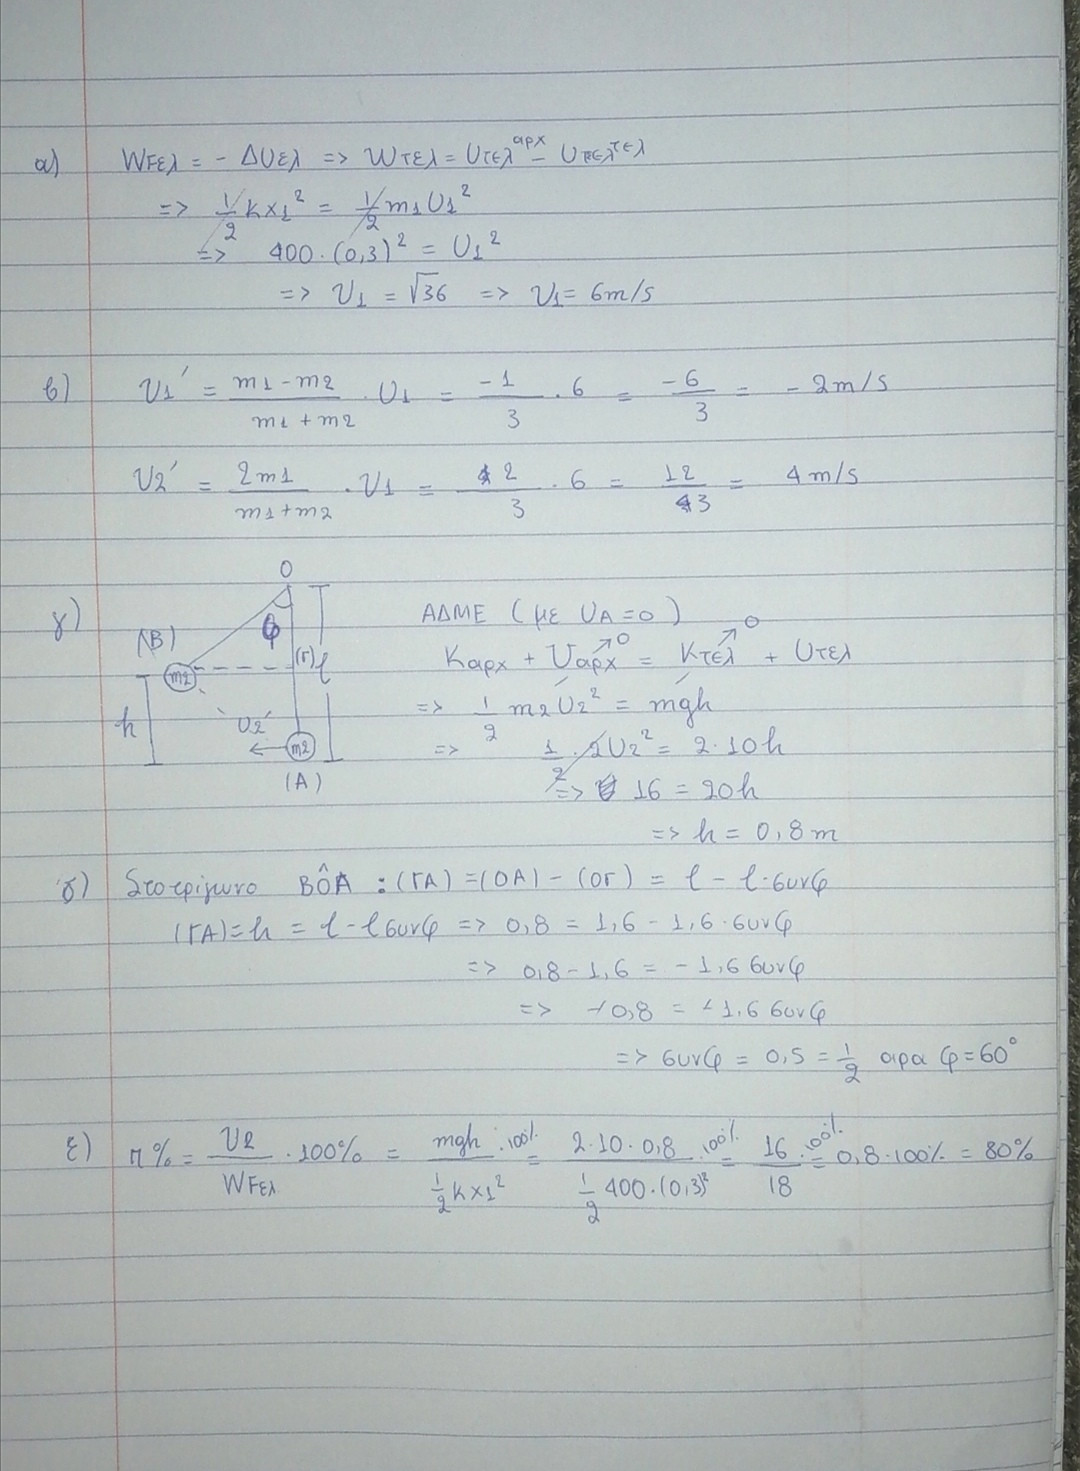 α) WFελ = - ΔUελ => Wτελ = Uτελ^αρχ - Uτελ^τελ
=> 1/2 kx1² = 1/2 m1 υ1²
=> 400·(0,3)² = υ1²
=> υ1 = √36 => υ1 = 6m/s
β) υ1' = (m1-m2)/(m1+m2) · υ1 = -1/3 · 6 = -6/3 = - 2m/s
υ2' = 2m1/(m1+m2) · υ1 = 2/3 · 6 = 12/3 = 4m/s
γ) ΑΔΜΕ (με UA=0)
Καρχ + Uαρχ↗0 = Κτελ↗0 + Uτελ
=> 1/2 m2υ2'² = mgh
=> 1/2 · 2υ2² = 2·10h
=> 16 = 20h
=> h = 0,8m
O
φ
(B)
m2
(Γ)
l
h
υ2'
m2
(A)
δ) Στο τρίγωνο BÔA : (ΓΑ) = (ΟΑ) - (ΟΓ) = l - l·συνφ
(ΓΑ)=h = l-lσυνφ => 0,8 = 1,6 - 1,6·συνφ
=> 0,8-1,6 = -1,6συνφ
=> -0,8 = -1,6συνφ
=> συνφ = 0,5 = 1/2 αρα φ=60°
ε) π% = U2/WFελ · 100% = mgh/(1/2 kx1²) · 100% = 2·10·0,8/(1/2 400·(0,3)²) · 100% = 16/18 · 100% = 0,8·100% = 80%